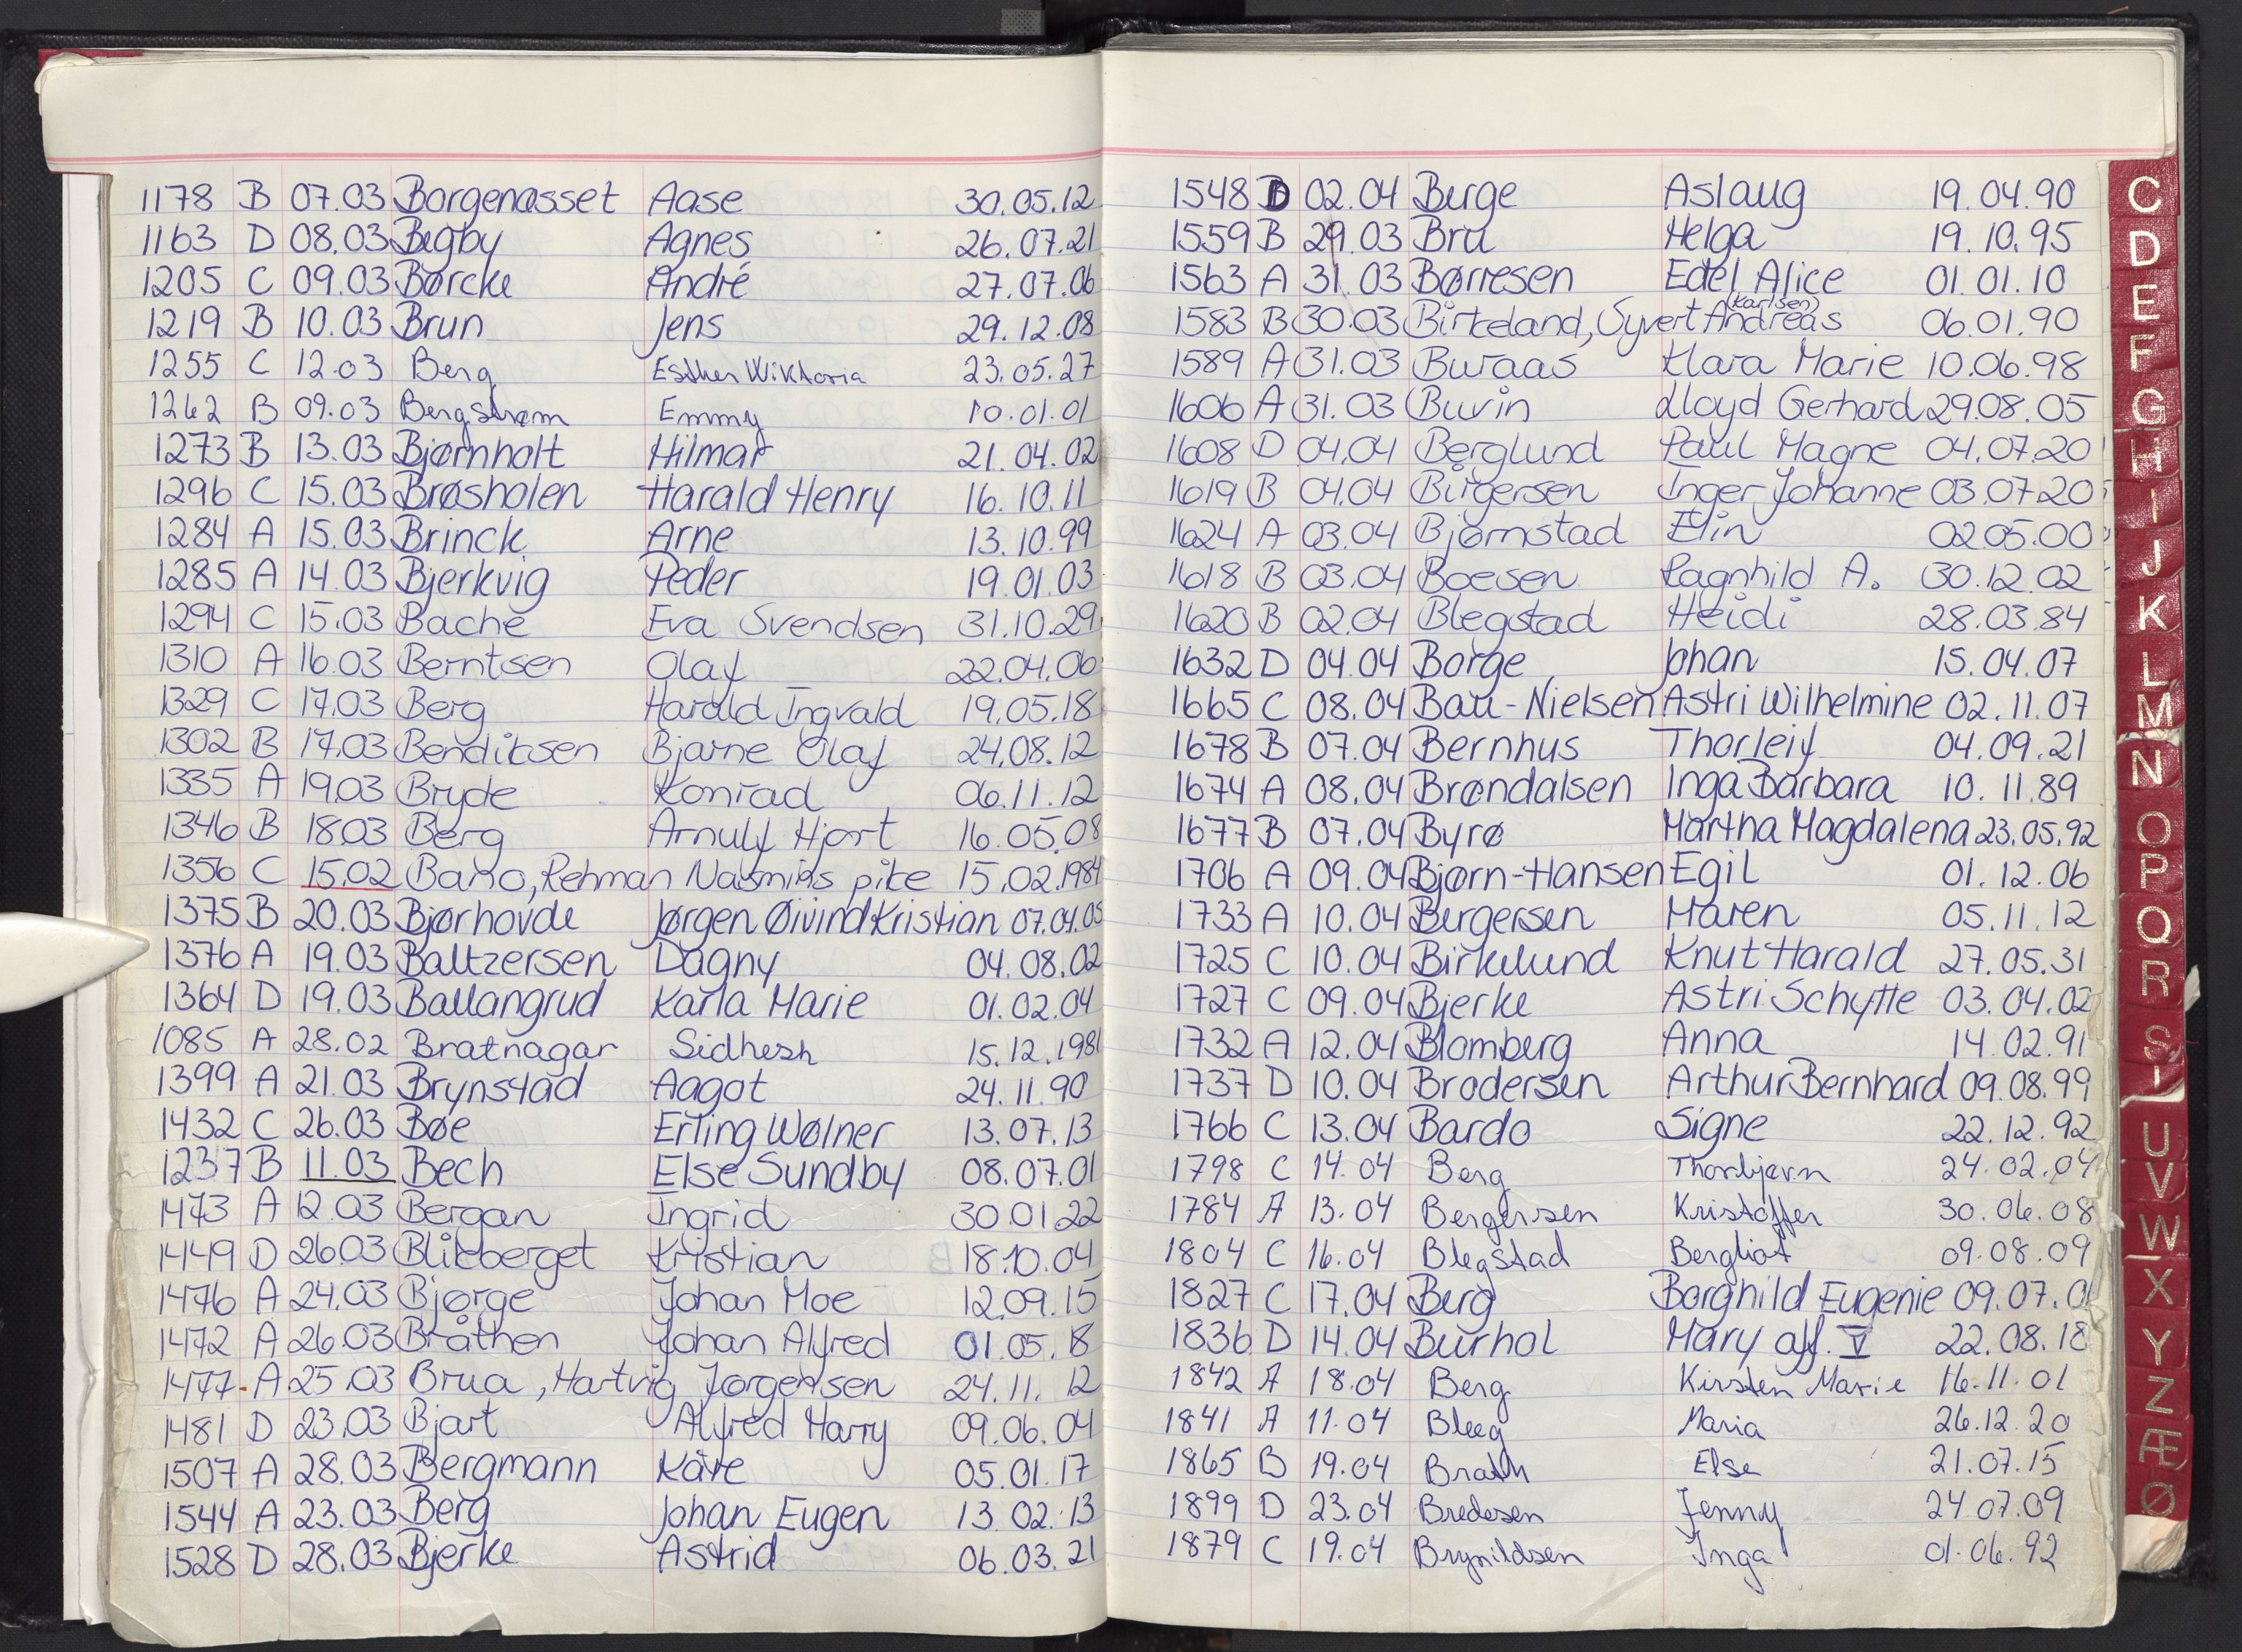 1178 B 07.03 Borgenasset Aase 30.05.12
1163 D 08.03 Begby Agnes 26.07.21
1205 C 09.03 Børcke André 27.07.06
1219 B 10.03 Brun Jens 29.12.08
1255 C 12.03 Berg Esther Wiktoria 23.05.27
1262 B 09.03 Bergstrøm Emmy 10.01.01
1273 B 13.03 Bjørnholt Hilmar 21.04.02
1296 C 15.03 Brøsholen Harald Henry 16.10.11
1284 A 15.03 Brinck Arne 13.10.99
1285 A 14.03 Bjerkvig Peder 19.01.03
1294 C 15.03 Bache Eva Svendsen 31.10.29
1310 A 16.03 Berntsen Olaf 22.04.06
1329 C 17.03 Berg Harald Ingvald 19.05.18
1302 B 17.03 Bendiksen Bjarne Olaf 24.08.12
1335 A 19.03 Bryde Konrad 06.11.12
1346 B 18.03 Berg Arnulf Hjort 16.05.08
1356 C 15.02 Bano, Rehman Nasmias pike 15.02.1984
1375 B 20.03 Bjørhovde Jørgen Øivind Kristian 07.04.05
1376 A 19.03 Baltzersen Dagny 04.08.02
1364 D 19.03 Ballangrud Karla Marie 01.02.04
1085 A 28.02 Bratnagar Sidhesh 15.12.1981
1399 A 21.03 Brynstad Aagot 24.11.90
1432 C 26.03 Bøe Erling Wølner 13.07.13
1237 B 11.03 Bech Else Sundby 08.07.01
1473 A 12.03 Bergan Ingrid 30.01.22
1449 D 26.03 Blikberget Kristian 18.10.04
1476 A 24.03 Bjørge Johan Moe 12.09.15
1472 A 26.03 Bråthen Johan Alfred 01.05.18
1477 A 25.03 Brua, Hartvig Jørgensen 24.11.12
1481 D 23.03 Bjart Alfred Harry 09.06.04
1507 A 28.03 Bergmann Kåre 05.01.17
1544 A 23.03 Berg Johan Eugen 13.02.13
1528 D 28.03 Bjerke Astrid 06.03.21
1548 D 02.04 Berge Aslaug 19.04.90
1559 B 29.03 Bru Helga 19.10.95
1563 A 31.03 Børresen Edel Alice 01.01.10
(Karlsen)
1583 B 30.03 Birkeland, Syvert Andreas 06.01.90
1589 A 31.03 Buraas Klara Marie 10.06.98
1606 A 31.03 Buvin Lloyd Gerhard 29.08.05
1608 D 04.04 Berglund Paul Magne 04.07.20
1619 B 04.04 Birgersen Inger Johanne 03.07.20
1624 A 03.04 Bjørnstad Elin 02.05.00
1618 B 03.04 Boesen Ragnhild A. 30.12.02
1620 B 02.04 Blegstad Heidi 28.03.84
1632 D 04.04 Borge Johan 15.04.07
1665 C 08.04 Bau-Nielsen Astri Wilhelmine 02.11.07
1678 B 07.04 Bernhus Thorleif 04.09.21
1674 A 08.04 Brøndalsen Inga Barbara 10.11.89
1677 B 07.04 Byrø Martha Magdalena 23.05.92
1706 A 09.04 Bjørn-Hansen Egil 01.12.06
1733 A 10.04 Bergersen Maren 05.11.12
1725 C 10.04 Birkelund Knut Harald 27.05.31
1727 C 09.04 Bjerke Astri Schytte 03.04.02
1732 A 12.04 Blomberg Anna 14.02.91
1737 D 10.04 Brodersen Arthur Bernhard 09.08.99
1766 C 13.04 Bardo Signe 22.12.92
1798 C 14.04 Berg Thorbjørn 24.02.04
1784 A 13.04 Bergersen Kristoffer 30.06.08
1804 C 16.04 Blegstad Bergliot 09.08.09
1827 C 17.04 Berg Borghild Eugenie 09.07.0
1836 D 14.04 Burhol Mary aff. V 22.08.18
1842 A 18.04 Berg Kirsten Marie 16.11.01
1841 A 11.04 Bleeg Maria 26.12.20
1865 B 19.04 Brath Else 21.07.15
1899 D 23.04 Bredesen Jenny 24.07.09
1879 C 19.04 Brynildsen Inga 01.06.92
C
D
E
F
G
H
I
J
K
L
M
N
O
P
Q
R
S
T
U
V
W
X
Y
Z
Æ
Ø